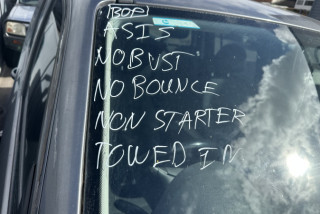 ASIS
NO BUST
NO BOUNCE
NON STARTER
TOWED IN